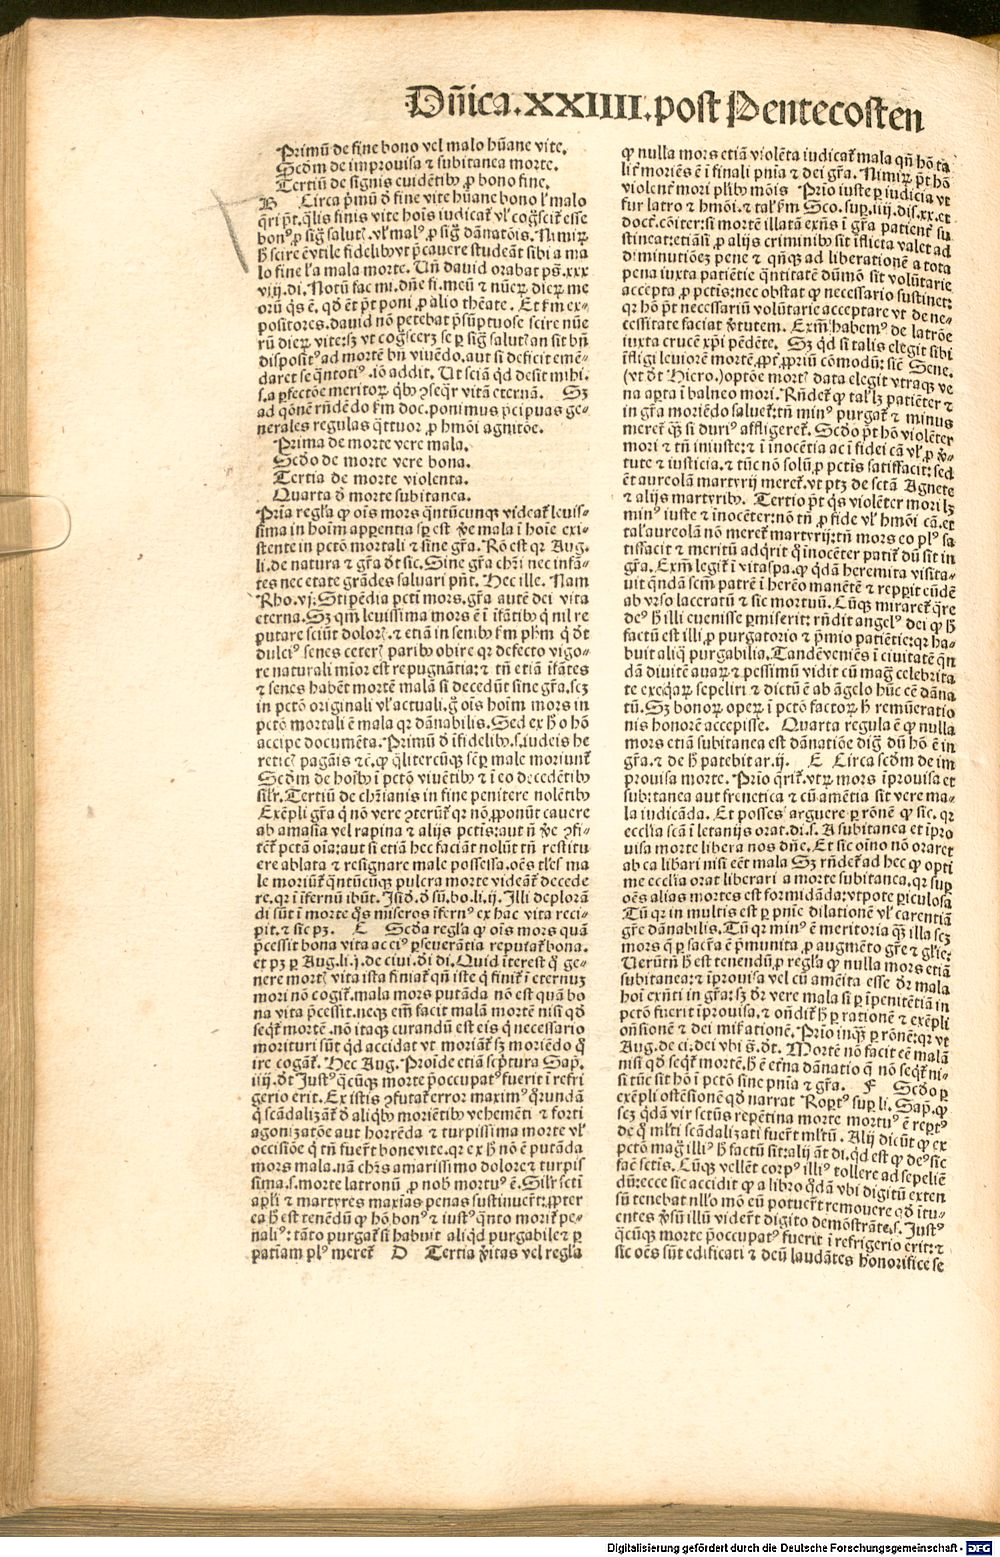 Dñica.XXIIII.post Pentecosten
Primũ de fine bono vel malo hũane vite.
Scđm de improuisa ⁊ subitanea morte.
Tertiũ de signis euidẽtibꝰ ꝓ bono fine.
B Circa p̃mũ đ fine vite hũane bono l̓ malo
q̃ri p̃t.q̃lis finis vite hoĩs iudicat̃ vl̓ cog̃scit̃ esse
bonꝰ ꝓ sig̃ salutꝭ.vl̓ malꝰ ꝓ sig̃ dãnatõis. Nimirꝝ
h̃ scire ẽ vtile fidelibꝰ vt p̃cauere studeãt sibi a ma
lo fine l̓a mala morte. Uñ dauid orabat pš.xxx
viij.di. Notũ fac mi.dñe fi.meũ ⁊ nũerꝝ dierꝝ me
orũ q̃s ẽ. qđ ẽt p̃t poni ꝓ alio thẽate. Et fm̃ ex-
positores.dauid nõ petebat p̃sũptuose scire nũe
rũ dierꝝ vite:sꝫ vt cog̃scerꝫ se ꝑ sig̃ salutꝭ an sit bñ
dispositꝰ ad mortẽ bñ viuẽdo.aut si deficit emẽ-
daret se q̃ntotiꝰ .iõ addit. Ut sciã qđ desit mihi.
s.a ꝑfectõe meritorꝝ q̃bꝰ ꝯseq̃r vitã eternã. Sꝫ
ad q̃õnẽ rñdẽdo fm̃ doc.ponimus p̃cipuas ge-
nerales regulas q̃ttuor ꝓ hmõi agnitõe.
Prima de morte vere mala.
Scđo de morte vere bona.
Tertia de morte violenta.
Quarta đ morte subitanea.
Pria regl̓a ꝙ oĩs mors q̃ntũcunqꝫ videat̃ leuis-
sima in hoĩm apparentia sp̃ est ꝟe mala ĩ hoĩe exi-
stente in pctõ mortali ⁊ sine gr̃a. Rõ est qꝛ Aug.
li.de natura ⁊ gr̃a đt sic. Sine gr̃a chr̃i nec infã-
tes nec etate grãdes saluari pñt. Hec ille. Nam
Rho.vj: Stipẽdia pcti mors.gr̃a autẽ dei vita
eterna. Sꝫ qm̃ leuissima mors ẽ ĩ ifãtibꝰ q̃ nil re
putare sciũt dolorꝭ.⁊ etiã in senibꝰ fm̃ ph̃m q̃ đt
dulciꝰ senes ceterꝭ paribꝰ obire qꝛ defectu vigo-
re naturali mĩor est repugnãtia:⁊ tñ etiã ifãtes
⁊ senes habẽt mortẽ malã si decedũt sine gr̃a.scꝫ
in pctõ originali vl̓ actuali.q̃ oĩs hoĩm mors in
pctõ mortali ẽ mala qꝛ dãnabilis. Sed ex h̃ o hõ
accipe documẽta. Primũ đ ifidelibꝰ.s.iudeis he
reticꝭ paganis ⁊c̃.ꝙ q̃litercũqꝫ sẽp̃ male moriunt̃
Scđm de hoĩbꝰ ĩ pctõ viuẽtibꝰ ⁊ ĩ eo decedẽtibꝰ
silr̃. Tertiũ de chr̃ianis in fine penitere nolẽtibꝰ
Exẽpli gr̃a q̃ nõ vere ꝯterũt̃ qꝛ nõ ꝓponũt cauere
ab amasia vel rapina ⁊ alijs pctis:aut ñ ꝟe ꝯfi-
tẽt̃ pctã oĩa:aut si etiã hec faciãt nolũt tñ restitu
ere ablata ⁊ resignare male possessa.oẽs tl̓es ma
le moriũt̃ q̃ntũcũqꝫ pulcra morte videãt̃ decede
re.qꝛ ĩ ifernũ ibũt. Isiđ.đ sũ.bo.li.ij. Illi deplorã
di sũt ĩ morte q̃s miseros ifernꝰ ex hac vita reci-
pit.⁊ sic pꝫ. C Scđa regl̓a ꝙ oĩs mors quã
p̃cessit bona vita ac ciꝰ ꝑseuerãtia reputat̃ bona.
et pꝫ ꝑ Aug.li.j.de ciui.di di. Quid iterest q̃ ge-
nere mortꝭ vita ista finiat̃ qñ iste q̃ finit̃ ĩ eternuꝫ
mori nõ cogit̃.mala mors putãda nõ est quã bo
na vita p̃cessit.neqꝫ em̃ facit malã mortẽ nisi qđ
seq̃t̃ mortẽ .nõ itaqꝫ curandũ est eis q̃ necessario
morituri sũt qđ accidat vt moriãt̃ sꝫ moriẽdo q̃
ire cogãt̃. Hec Aug. Proĩde etiã scp̃tura Sap.
iiij.đt Justꝰ q̃cũqꝫ morte p̃occupatꝰ fuerit ĩ refri
gerio erit. Ex istis ꝯfutat̃ error maximꝰ q̃rundã
q̃ scãdalizãt̃ đ aliq̃bꝰ moriẽtibꝰ vehemẽti ⁊ forti
agonizatõe aut horrẽda ⁊ turpissima morte vl̓
occisiõe q̃ tñ fuer̃t bone vite.qꝛ ex h̃ nõ ẽ putãda
mors mala.nã chr̃s amarissimo dolore ⁊ turpis
sima.s.morte latronũ ꝓ nob̃ mortuꝰ ẽ. Silr̃ scti
apl̓i ⁊ martyres maxĩas penas sustinuer̃t: ꝓpter
ea h̃ est tenẽdũ ꝙ hõ bonꝰ ⁊ iustꝰ q̃nto morit̃ pe-
naliꝰ: tãto purgat̃ si habuit aliqđ purgabile ⁊ ꝑ
patĩam plꝰ meret̃ D Tertia ꝟitas vel regl̓a
ꝙ nulla mors etiã violẽta iudicat̃ mala qñ hõ ta
lit̃ moriẽs ẽ ĩ finali pñia ⁊ dei gr̃a. Nimirꝝ p̃t hõ
violent̃ mori pl̓ibꝰ mõis Prio iuste ꝑ iudicia vt
fur latro ⁊ hmõi.⁊ tal̓ fm̃ Sco.suꝑ.iiij.dis.xx.et
doct̃.cõiter:si mortẽ illatã exñs ĩ gr̃a patient̃ su
stineat:etiãsi ꝓ alijs criminibꝰ sit iflicta valet ad
diminutiõeꝫ pene ⁊ qñqꝫ ad liberationẽ a tota
pena iuxta patiẽtie q̃ntitatẽ dũmõ sit volũtarie
accepta ꝓ pctis:nec obstat ꝙ necessario sustinet:
qꝛ hõ p̃t necessariũ volũtarie acceptare vt de ne-
cessitate faciat ꝟtutem. Exm̃ habemꝰ de latrõe
iuxta crucẽ xp̃i pẽdẽte. Sꝫ qđ si talis elegit sibi
ĩfligi leuiorẽ mortẽ ꝓpt̃ ꝓpriũ cõmodũ: sicẽ Sene.
(vt đt Hiero.) optõe mortꝭ data elegit vtraqꝫ ve
na aꝑta ĩ balneo mori. Rñdet̃ ꝙ tal̓ lꝫ patiẽter ⁊
in gr̃a moriẽdo saluet̃:tñ minꝰ purgat̃ ⁊ minus
meret̃ q̃ꝫ si duriꝰ affligeret̃. Scđo p̃t hõ violẽter
mori ⁊ tñ iniuste:⁊ ĩ inocẽtia ac ĩ fidei cã vl̓ ꝓ ꝟ-
tute ⁊ iusticia.⁊ tũc nõ solũ ꝓ pctis satisfacit:sed
ẽt aureolã martyrij meret̃.vt ptꝫ de sctã Agnete
⁊ alijs martyribꝰ. Tertio p̃t q̃s violẽter mori lꝫ
minꝰ iuste ⁊ inocẽter:nõ tñ ꝓ fide vl̓ hmõi cã.et
tal̓ aureolã nõ meret̃ martyrij:tñ mors eo plꝰ sa
tisfacit ⁊ meritũ adq̃rit q̃ inocẽter patit̃ dũ sit in
gr̃a. Exm̃ legit̃ ĩ vitaspa.ꝙ q̃dã heremita visita-
uit q̃ndã scm̃ patrẽ ĩ herẽo manẽtẽ ⁊ reꝑꝑit eũdẽ
ab vrso laceratũ ⁊ sic mortuũ. Cũqꝫ miraret̃ q̃re
deꝰ h̃ illi euenisse ꝑmiserit: rñdit angelꝰ dei ꝙ h̃
factũ est illi ꝓ purgatorio ⁊ p̃mio patiẽtie:qꝛ ha-
buit aliq̃ purgabilia. Tandẽ veniẽs ĩ ciuitatẽ q̃n
dã diuitẽ auarꝝ ⁊ pessimũ vidit cũ mag̃ celebrita
te exeq̃arꝝ sepeliri ⁊ dictũ ẽ ab ãgelo hũc cẽ dãna
tũ. Sꝫ bonorꝝ operꝝ ĩ pctõ factorꝝ h̃ remũeratio
nis honorẽ accepisse. Quarta regula ẽ ꝙ nulla
mors etiã subitanea est dãnatiõe dig̃ dũ hõ ẽ in
gr̃a.⁊ de h̃ patebit ar.ij. E Circa scđm de im
prouisa morte. Prio q̃rit̃.vtꝝ mors ĩprouisa et
subitanea aut frenetica ⁊ cũ amẽtia sit vere ma-
la iudicãda. Et posses arguere ꝑ rõnẽ ꝙ sic. qꝛ
eccl̓ia scã ĩ letanijs orat.di.s. A subitanea et ĩpro
uisa morte libera nos dñe. Et sic oĩno nõ oraret
ab ea libari nisi eẽt mala Sꝫ rñdet̃ ad hec ꝙ opti
me eccl̓ia orat liberari a morte subitanea.qꝛ suꝑ
oẽs alias mortes est formidãda:vtpote ꝑiculosa
Tũ qꝛ in multis est ꝑ pnĩe dilationẽ vl̓ carentiã
gr̃e dãnabilis. Tũ qꝛ minꝰ ẽ meritoria q̃ꝫ illa scꝫ
mors q̃ ꝑ sacr̃a ẽ p̃munita ꝓ augmẽto gr̃e ⁊ gl̓ie:
Uerũtñ h̃ est tenendũ ꝓ regl̓a ꝙ nulla mors etiã
subitanea:⁊ ĩprouisa vel cũ amẽita esse đr mala
hoĩ exñti in gr̃a:sꝫ đr vere mala si ꝑ ĩpenitẽtiã in
pctõ fuerit ĩprouisa.⁊ oñdit̃ h̃ ꝑ rationẽ ⁊ exẽpli
oñsionẽ ⁊ dei mĩrationẽ. Prio inqꝫ ꝑ rõnẽ:qꝛ vt
Aug.de ci:dei vbi s̃.đt. Mortẽ nõ facit eẽ malã
nisi qđ seq̃t̃ mortẽ.h̃ ẽ etña dãnatio q̃ nõ seq̃t̃ ni-
si tũc sit hõ ĩ pctõ sine pnĩa ⁊ gr̃a. F Scđo ꝑ
exẽpli ostẽsionẽ qđ narrat Roꝑtꝰ suꝑ li. Sap.ꝙ
scꝫ q̃dã vir sctũs repẽtina morte mortuꝰ ẽ reꝑtꝰ
de q̃ ml̓ti scãdalizati fuer̃t ml̓tũ. Alij dicũt ꝙ ex
pctõ mag̃ illiꝰ h̃ factũ sit:alij ãt di.qđ est ꝙ deꝰ sic
faẽ sctis. Cũqꝫ vellẽt corpꝰ illiꝰ tollere ad sepeliẽ
dũ:ecce sic accidit ꝙ a libro q̃dã vbi digitũ exten
sũ tenebat nullo mõ eũ potuer̃t remouere qđ ĩtu-
entes ꝟsũ illũ vider̃t digito demõstrãtes. Justꝰ
q̃cũqꝫ morte p̃occupatꝰ fuerit ĩ refrigerio erit:⁊
sic oẽs sũt edificati ⁊ deũ laudãtes honorifice se
Digitalisierung gefördert durch die Deutsche Forschungsgemeinschaft - DFG